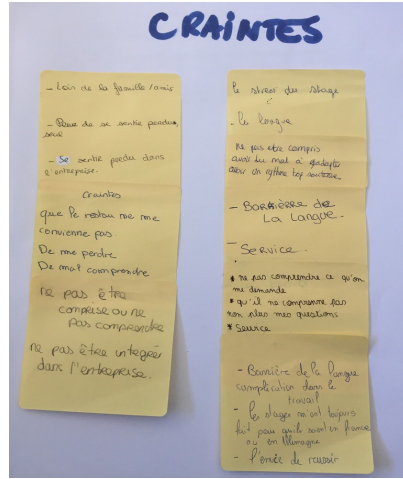 CRAINTES
- Loin de la famille / amis
- Peur de se sentir perdus,
seul
- Se sentir perdu dans
l'entreprise.
craintes
que le restau ne me
convienne pas
De me perdre
De mal comprendre
ne pas être
comprise ou ne
pas comprendre
ne pas être integrée
dans l'entreprise.
le stress du stage
- la langue
ne pas etre compris
avoir du mal à
avoir un rythme trop soutenu
- BARRIÈRE de
LA Langue.
- Service.
* ne pas comprendre ce qu'on
me demande
* qu'il ne comprenne pas
non plus mes questions
* Service
- Barrière de la langue
complication dans le
travail
- les stages m'ont toujours
fait peur qu'ils soient en france
ou en Allemagne
- l'envie de reussir